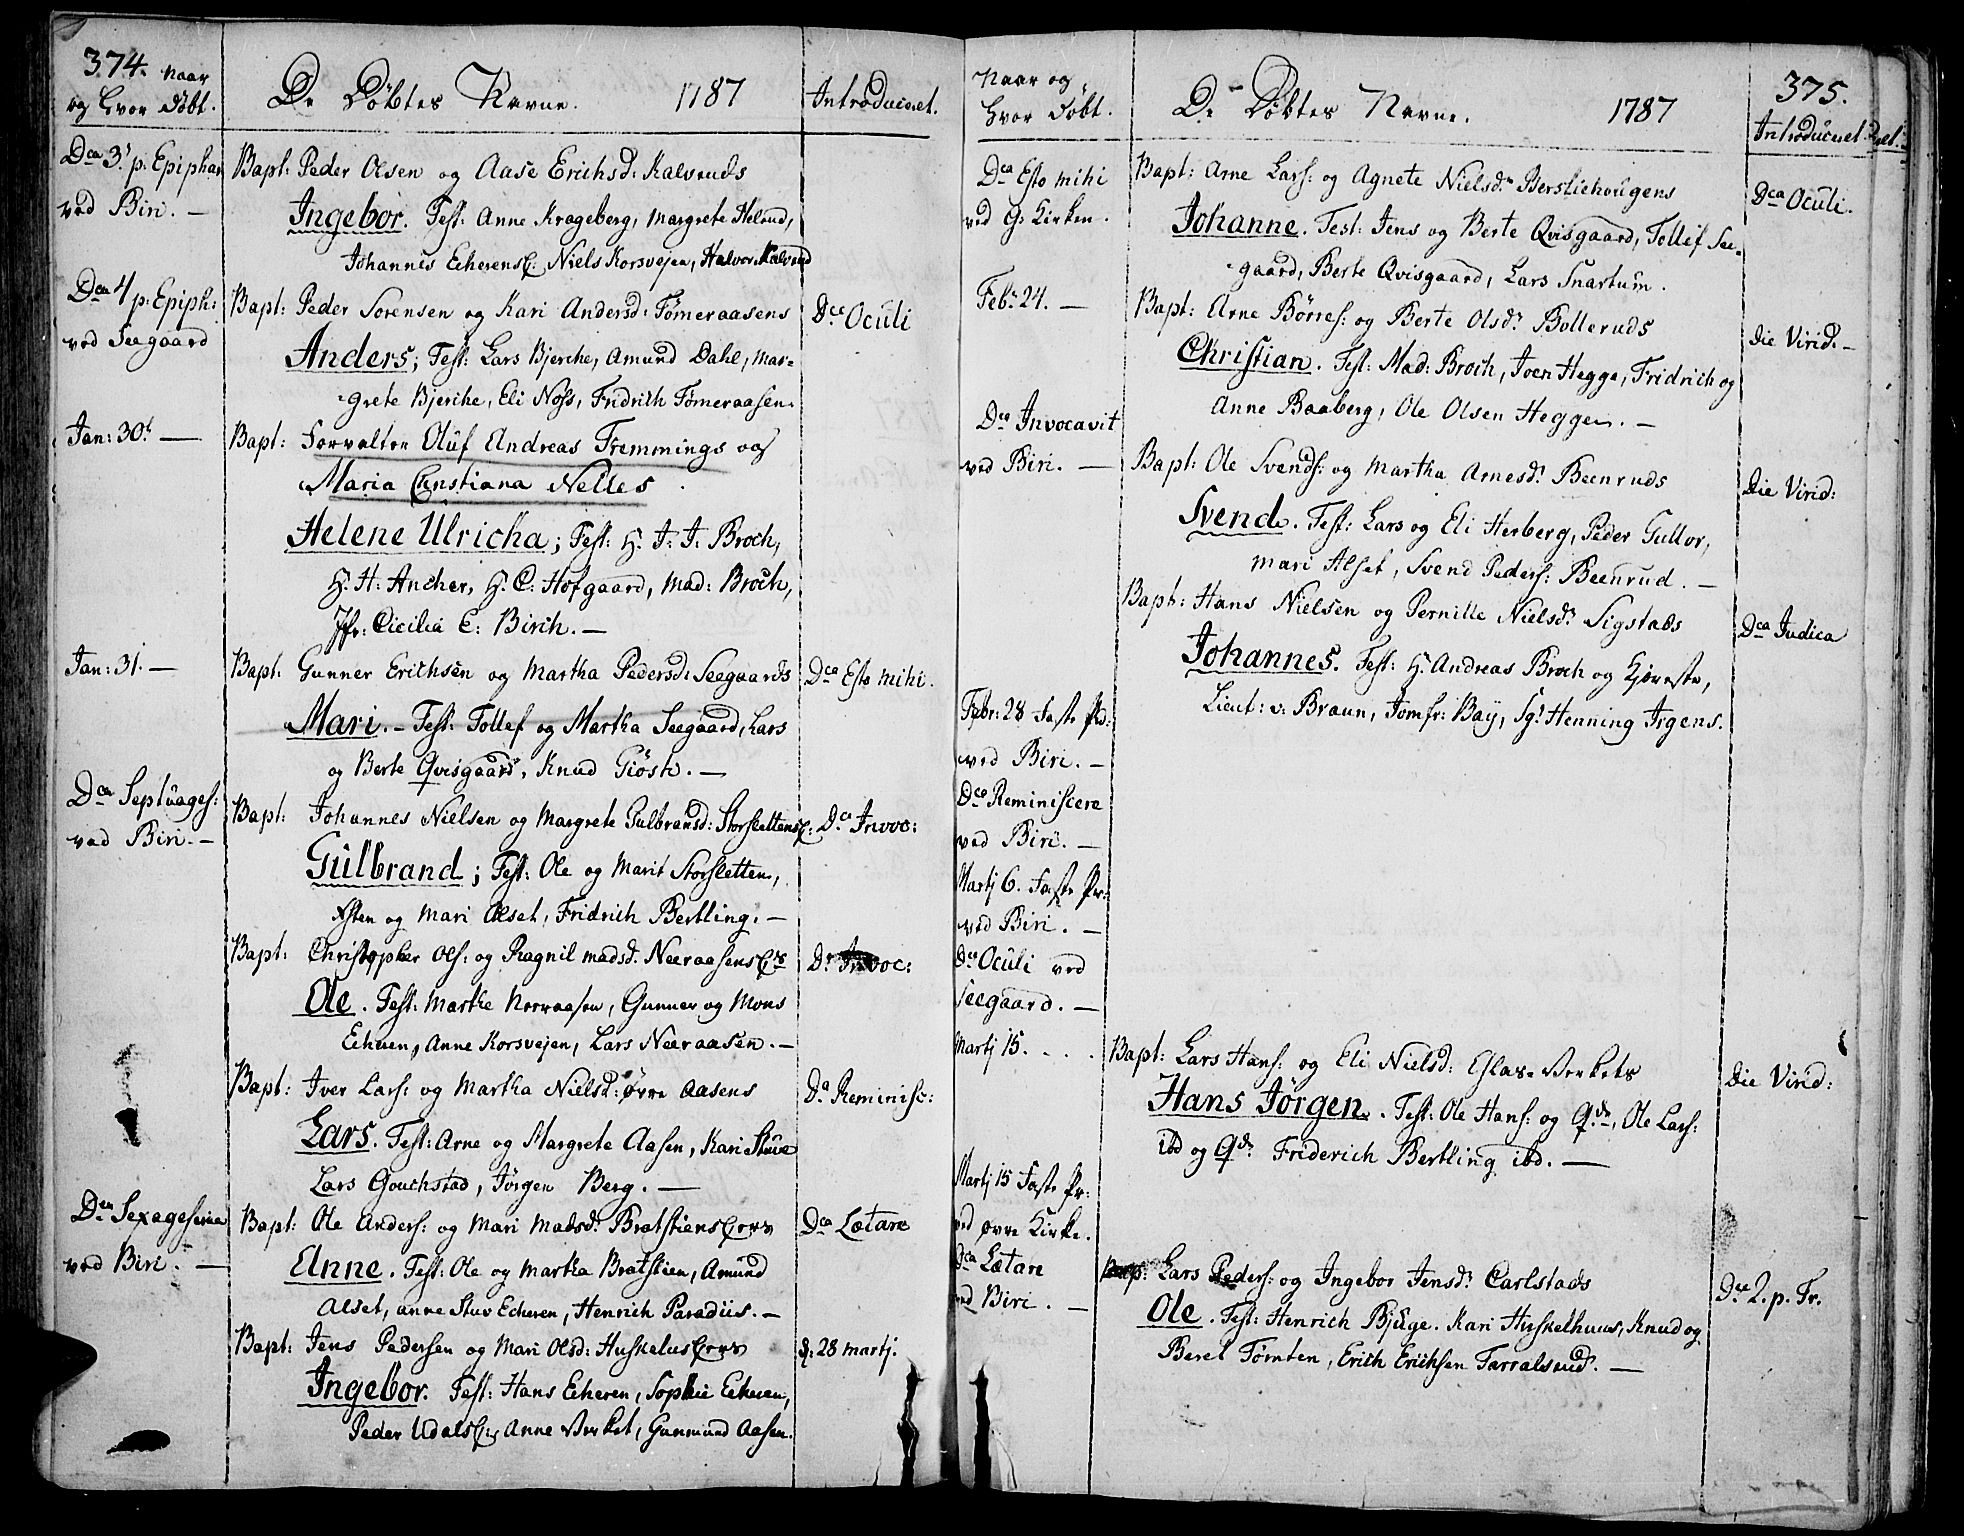 374. Naar
og Hvor Döbt.
De Döbtes Navne. 1787
Introduceret.
Dca 3. p. Epiphan
ved Biri. —
Bapt: Peder Olsen og Aase Erichsd: Kalveruds
Ingebor. Test: Anne Krageberg, Margrete Helund,
Johannes Echerens Niels Korsvejen, Halvor Kalverud
Dca 4 p. Epiph:
ved Seegaard
Bapt: Peder Sörensen og Kari Andersd: Tömeraasens
Dca Oculi
Anders; Test: Lars Bjerche, Amund Dahl, Mar-
grete Bjerche, Eli Noss, Fridrich Tömeraasen.
Jan: 30. —
Bapt: Forvalter Oluf Andreas Fremmings og
Maria Christiana Nelles.
Helene Ulricha; Test: H. J. J. Broch,
H. H: Ancher, H. C: Hofgaard, Mad: Broch,
Jfr: Cicilia E: Birch. —
Jan: 31. —
Bapt: Gunner Erichsen og Martha Pedersd: Seegaards
Dca Esto mihi.
Mari. — Test: Tollef og Martha Seegaard, Lars
og Berte Qvisgaard, Knud Giösth. —
Dca Septuages:
ved Biri. —
Bapt: Johannes Nielsen og Margrete Gulbransd: Storsletten
Dca Invoc:
Gulbrand; Test: Ole og Marit Storsletten,
Asten og Mari Alset, Fridrich Bertling. —
Bapt: Christopher Ols: og Ragnil Madsd. Neeraasens
Dca Invoc:
Ole. Test: Marthe Neeraasen, Gunner og Mons
Echeren, Anne Korsvejen, Lars Neeraasen. —
Bapt: Iver Lars: og Martha Nielsd: Övre Aasens
Dca Reminisc:
Lars. Test: Arne og Margrete Aasen, Kari Stuve
Lars Gouchstad, Jörgen Berg. —
Dca Sexagesima
ved Biri. —
Bapt: Ole Anders: og Mari Madsd. Bratstiens
Dca Lætare
Anne. Test: Ole og Martha Bratstien, Amund
Alset, Anne Stuv Echeren, Henrich Paradiis. —
Bapt: Jens Pedersen og Mari Olsd: Huskelus
d: 28 Martj.
Ingebor. Test: Hans Echeren, Sophie Echeren,
Peder Udals Anne Verket, Gunmund Aasen.
Naar og
Hvor Döbt.
De Döbtes Navne. 1787
375.
Introduceret.
Dca Esto mihi
ved G: Kirken.
Bapt: Arne Lars: og Agnete Nielsd. Berstiehougens
Dca Oculi.
Johanne. Test: Jens og Berte Qvisgaard, Tollef See-
gaard, Berte Qvisgaard, Lars Snartum.
Febr. 24. —
Bapt: Arne Börres: og Berte Olsd. Bolleruds
Die Virid. —
Christian. Test: Mad: Broch, Joen Hegge, Fridrich og
Anne Baaberg, Ole Olsen Heggen. —
Dca Invocavit
ved Biri. —
Bapt: Ole Svends: og Martha Arnesd. Beenruds
Die Virid:
Svend. Test: Lars og Eli Herberg, Peder Gullor,
Mari Alset, Svend Peders: Beenrud. —
Bapt: Hans Nielsen og Pernille Nielsd. Sigstads
Dca Judica
Johannes. Test: H. Andreas Broch og Kjæreste,
Lieut: v: Braun, Jomfr: Bay, Sr. Henning Irgens.
Febr: 28 Faste Præd:
ved Biri. —
Dca Reminiscere
ved Biri. —
Martj 6. Faste Pr:
ved Biri. —
Dca Oculi ved
Seegaard. —
Martj 15. . . .
Bapt: Lars Hans: og Eli Nielsd: Glas-Verkets
Die Virid:
Hans Jörgen. Test: Ole Hans: og Qde, Ole Lars:
ibd og Qde. Friderich Bertling ibd. —
Martj 15 Faste Pr:
ved Övre Kirke.
Dca Lætare
ved Biri. —
Bapt: Lars Peders: og Ingebor Jensd. Carlstads
Dca 2. p. Tr.
Ole. Test: Henrich Bjuge. Kari Huskelhuus, Knud og
Beret Tömten, Erich Erichsen Tarralsrud. —